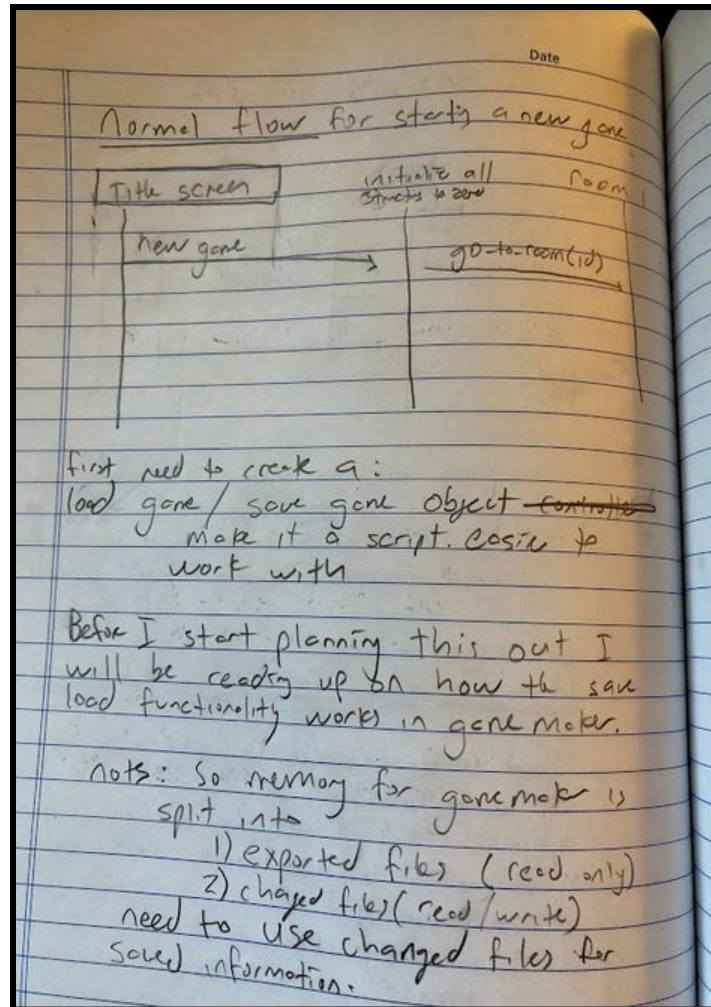 Date
Normal flow for starting a new game
Title screen
initialize all
structs to zero
room 1
new game
go-to-room(id)
first need to create a:
load game / save game object controller
make it a script. easier to
work with
Before I start planning this out I
will be reading up on how the save
load functionality works in game maker.
nots: So memory for gamemaker is
split into
1) exported files (read only)
2) chaged files (read/write)
need to use changed files for
saved information.